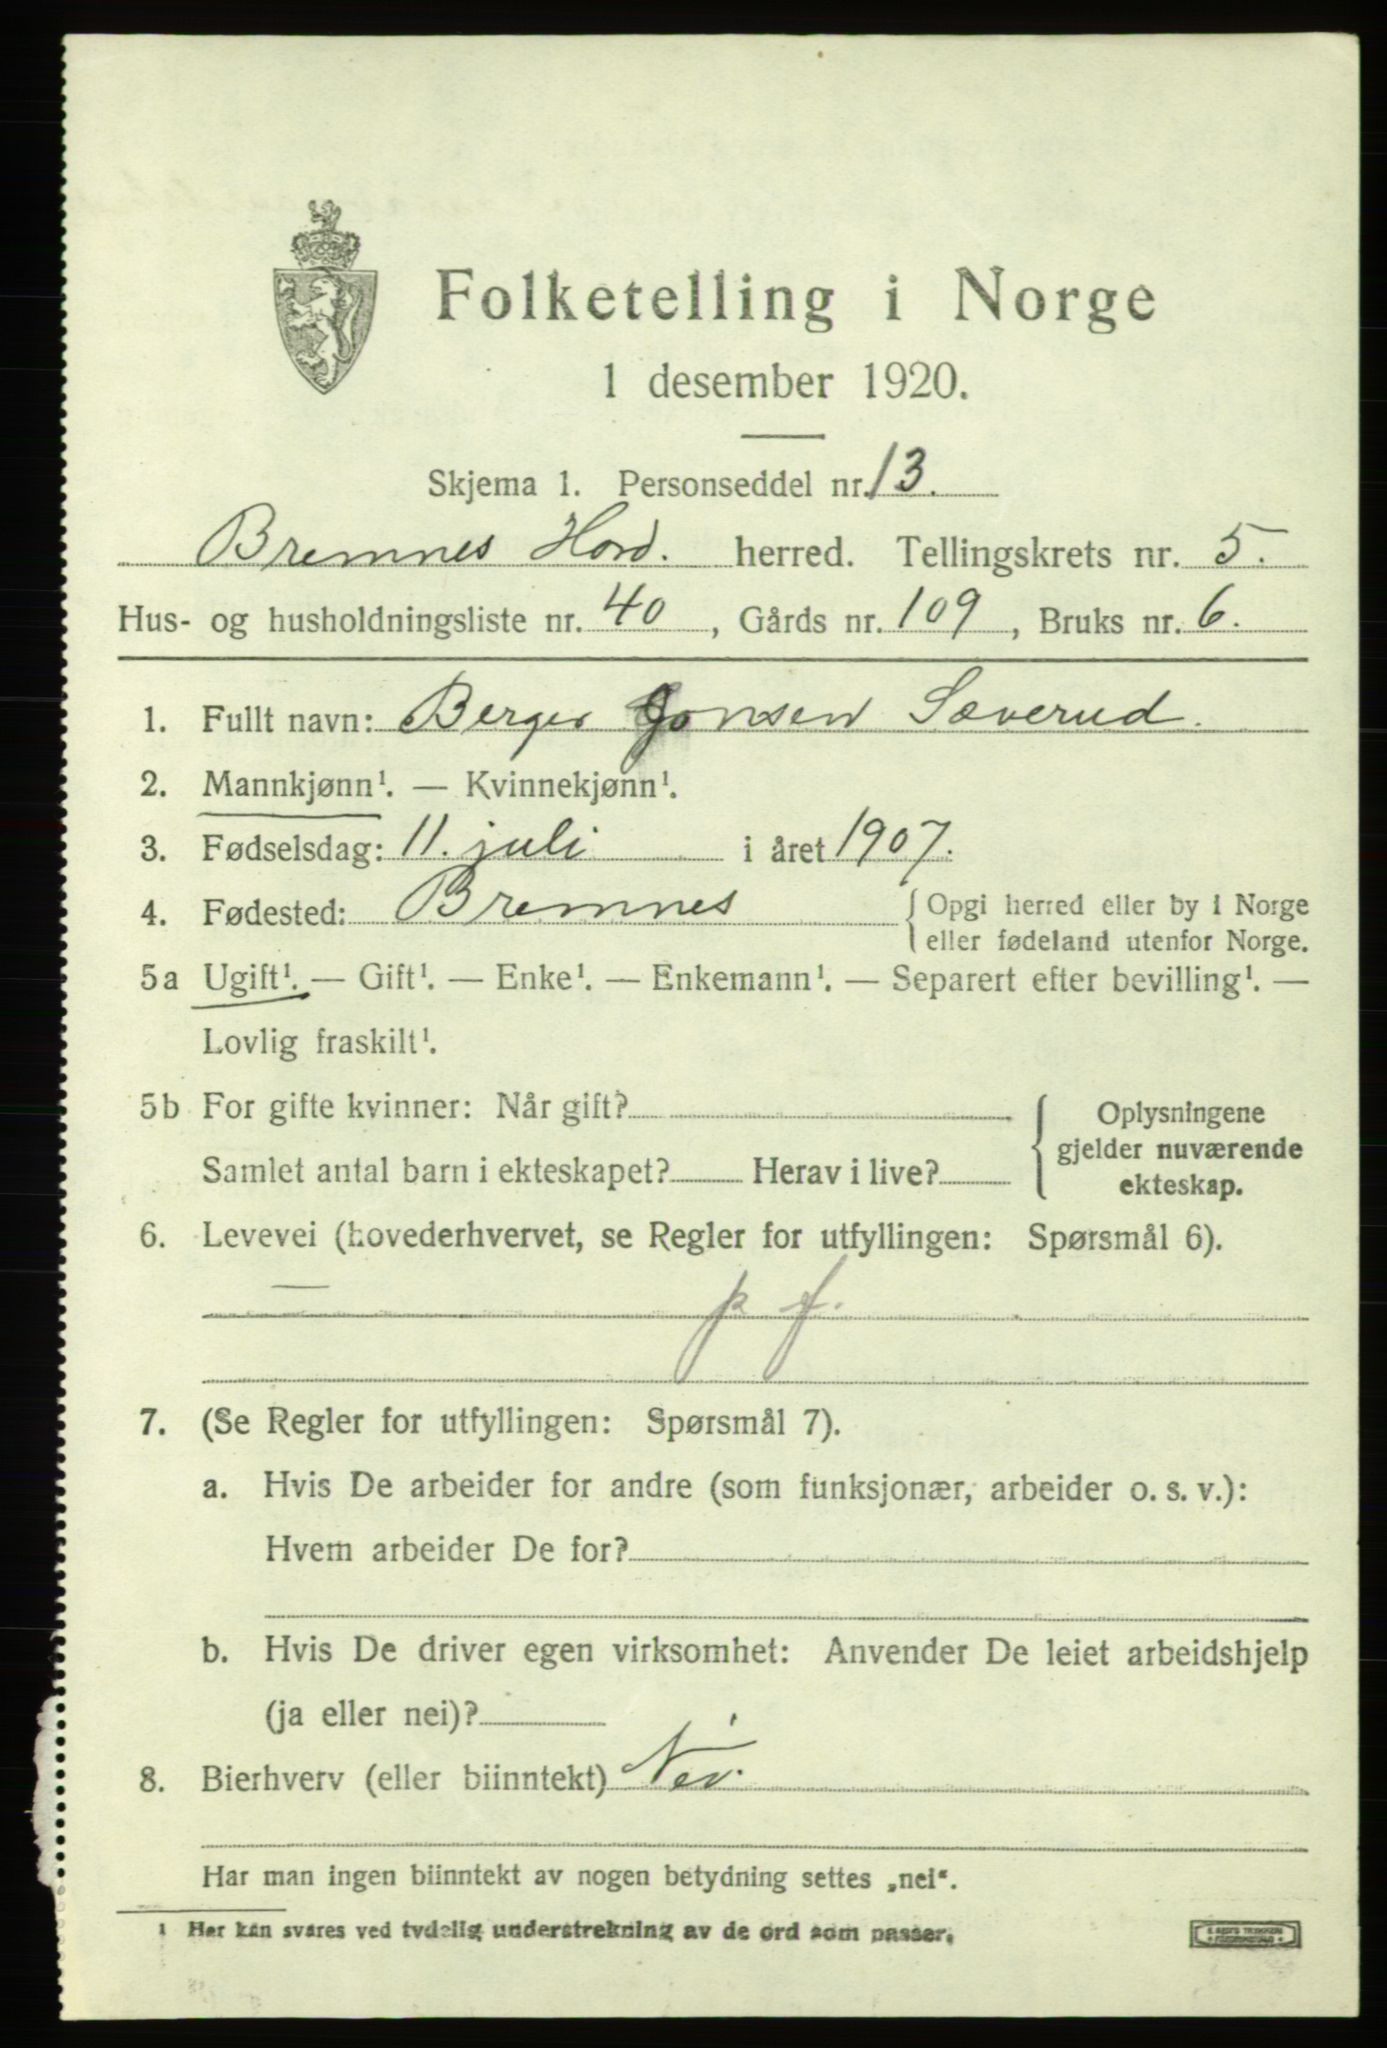 Folketelling i Norge
1 desember 1920.
Skjema 1. Personseddel nr. 13.
Bremnes Hord. herred. Tellingskrets nr. 5.
Hus- og husholdningsliste nr. 40, Gårds nr. 109, Bruks nr. 6.
1. Fullt navn: Berger Jonsen Sæverud.
2. Mannkjønn¹. — Kvinnekjønn¹.
3. Fødselsdag: 11. juli i året 1907.
4. Fødested: Bremnes { Opgi herred eller by i Norge
eller fødeland utenfor Norge.
5a Ugift¹. — Gift¹. — Enke¹. — Enkemann¹. — Separert efter bevilling¹. —
Lovlig fraskilt¹.
5b For gifte kvinner: Når gift?
Samlet antal barn i ekteskapet? Herav i live?
{ Oplysningene
gjelder nuværende
ekteskap.
6. Levevei (hovederhvervet, se Regler for utfyllingen: Spørsmål 6).
— p f.
7. (Se Regler for utfyllingen: Spørsmål 7).
a. Hvis De arbeider for andre (som funksjonær, arbeider o. s. v.):
Hvem arbeider De for?
b. Hvis De driver egen virksomhet: Anvender De leiet arbeidshjelp
(ja eller nei)?
8. Bierhverv (eller biinntekt) Nei.
Har man ingen biinntekt av nogen betydning settes „nei“.
¹ Her kan svares ved tydelig understrekning av de ord som passer.